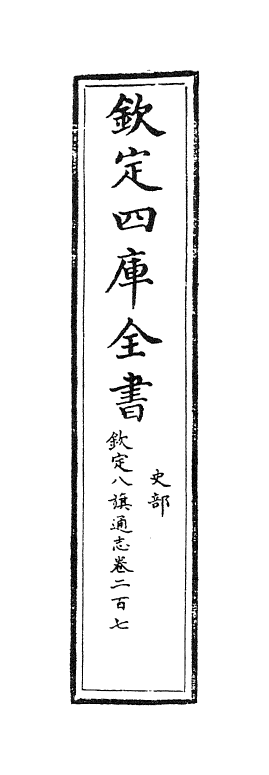 欽定四庫全書
史部
欽定八旗通志卷二百七